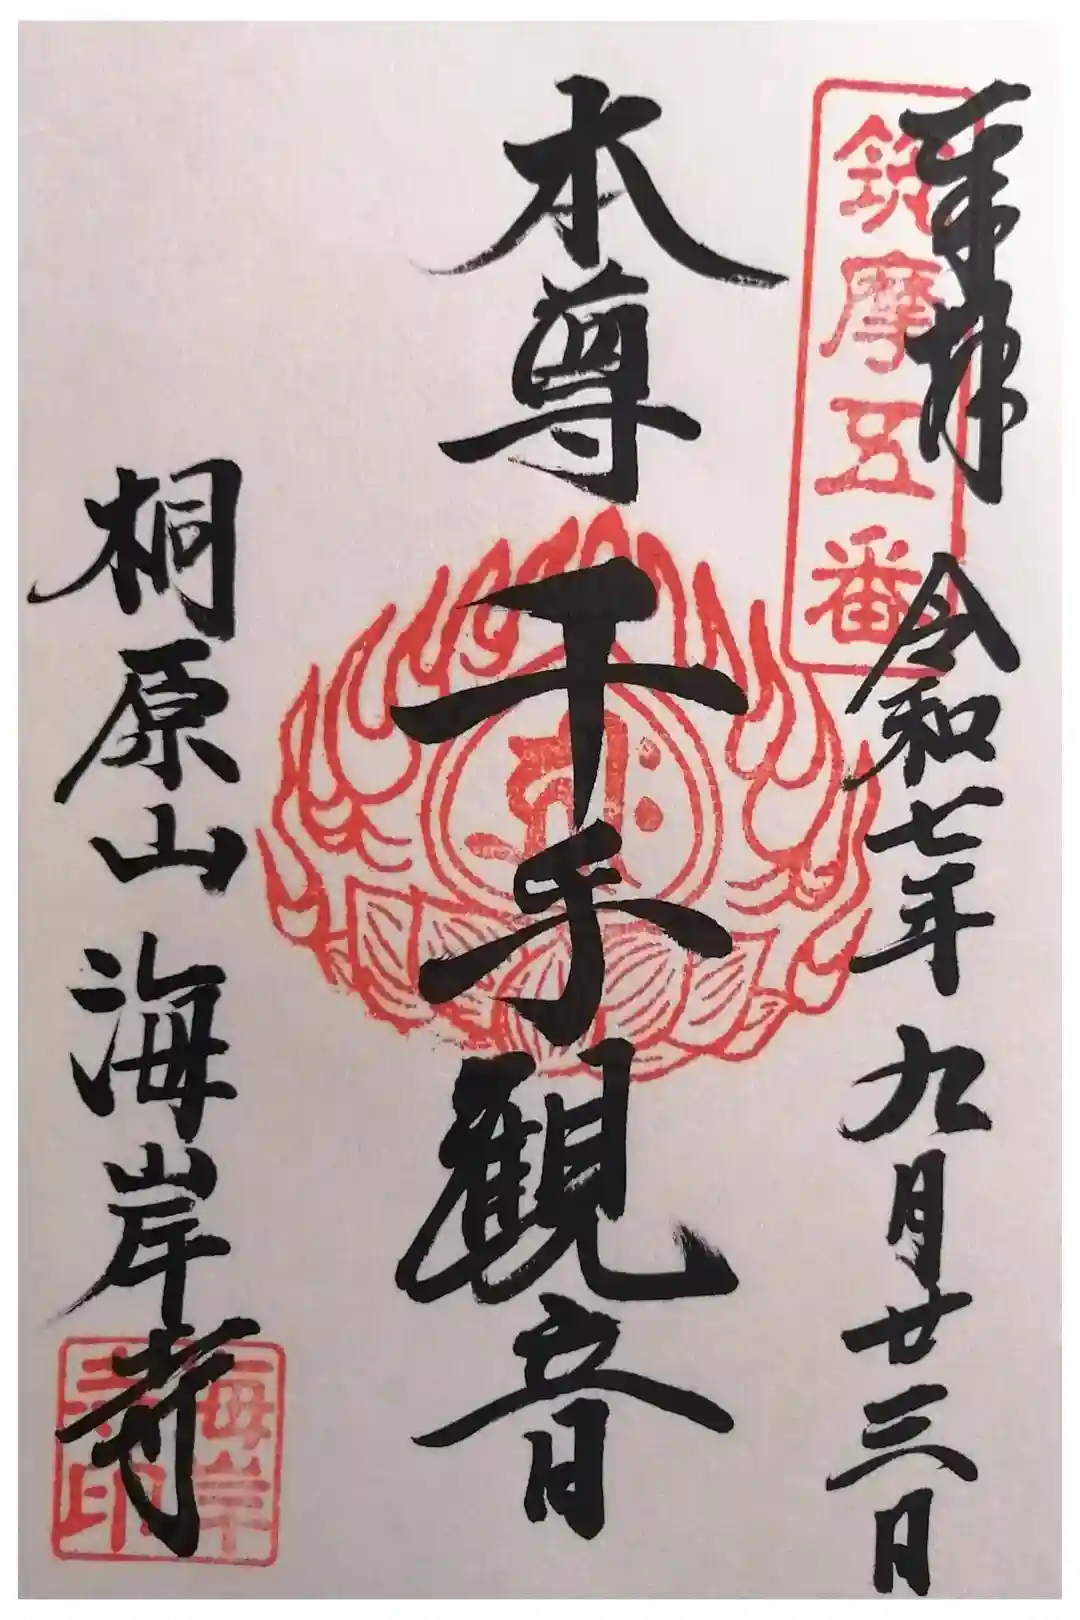 奉拝 令和七年 九月廿三日
筑摩五番
本尊 千手観音
桐原山 海岸寺
海岸
寺印